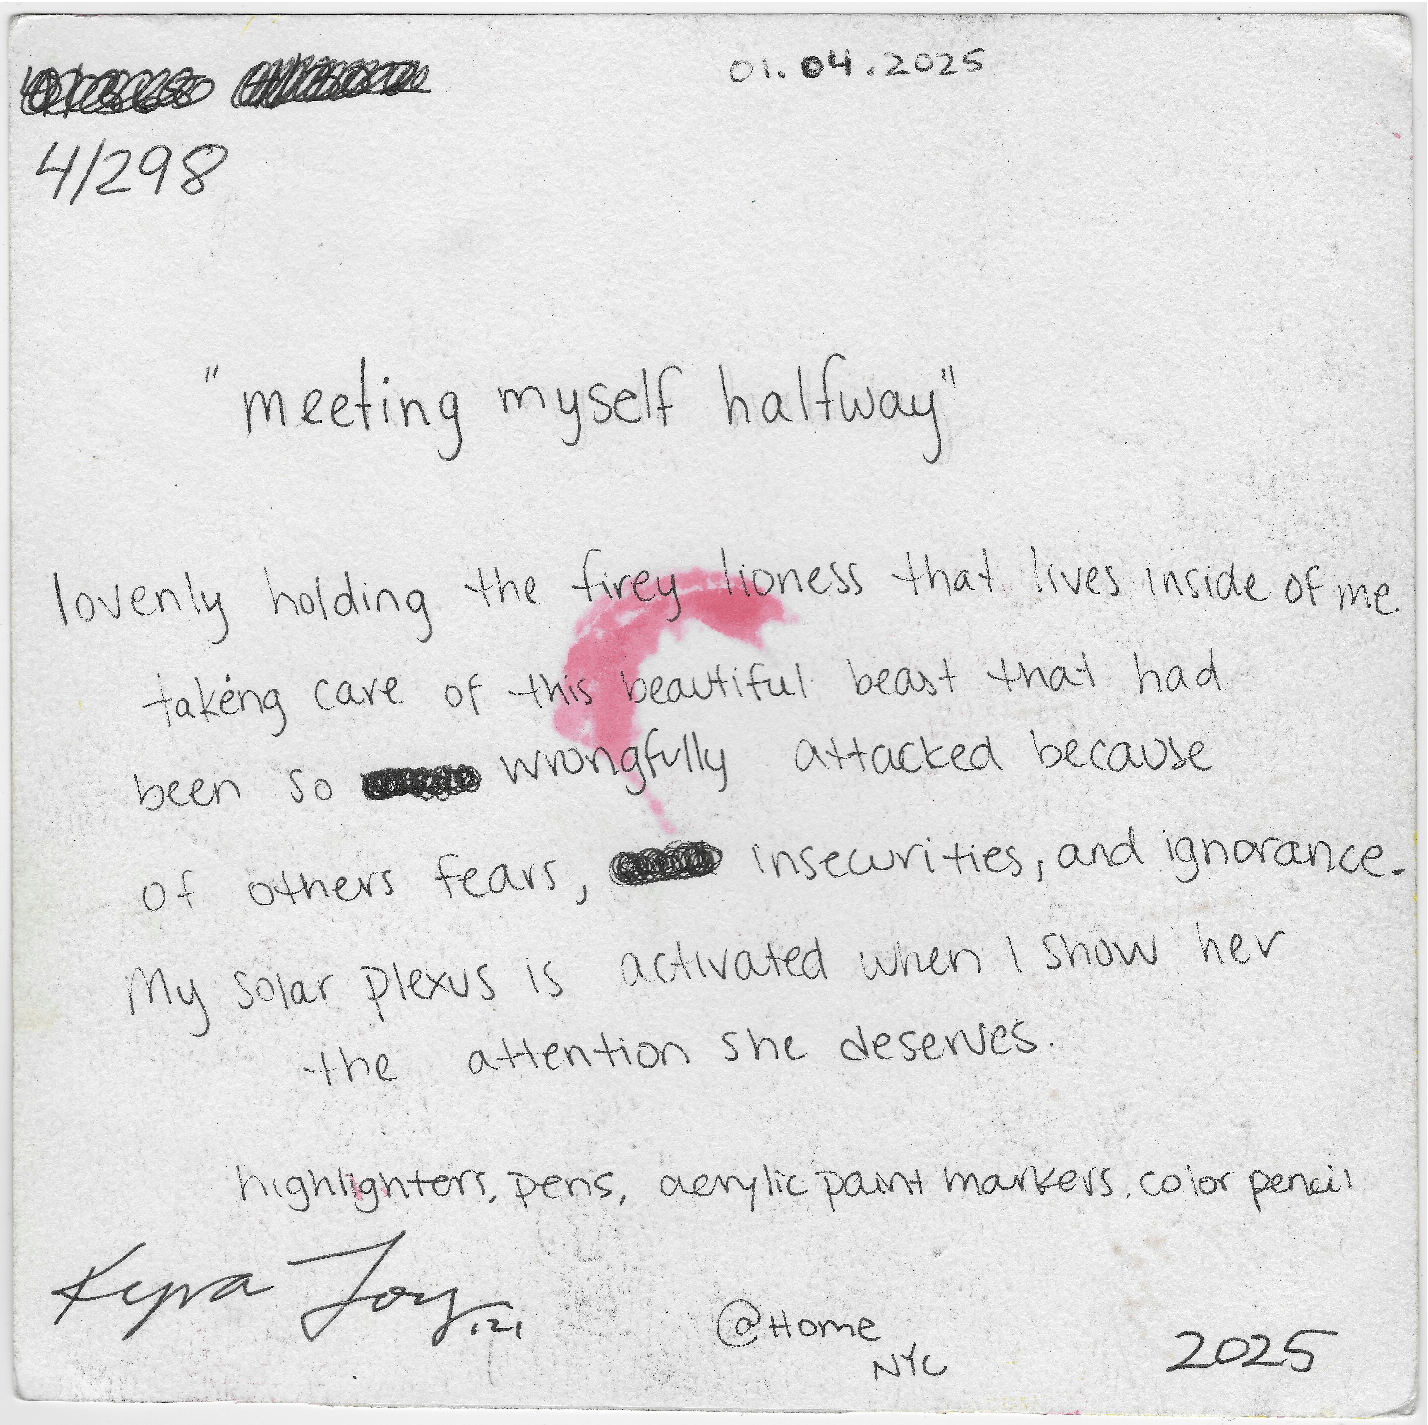 01.04.2025
4/298
"meeting myself halfway"
lovenly holding the firey lioness that lives inside of me.
taking care of this beautiful beast that had
been so wrongfully attacked because
of others fears, insecurities, and ignorance.
My solar plexus is activated when I show her
the attention she deserves.
highlighters, pens, acrylic paint markers, color pencil
Kyra Joy .121
@Home
NYC
2025